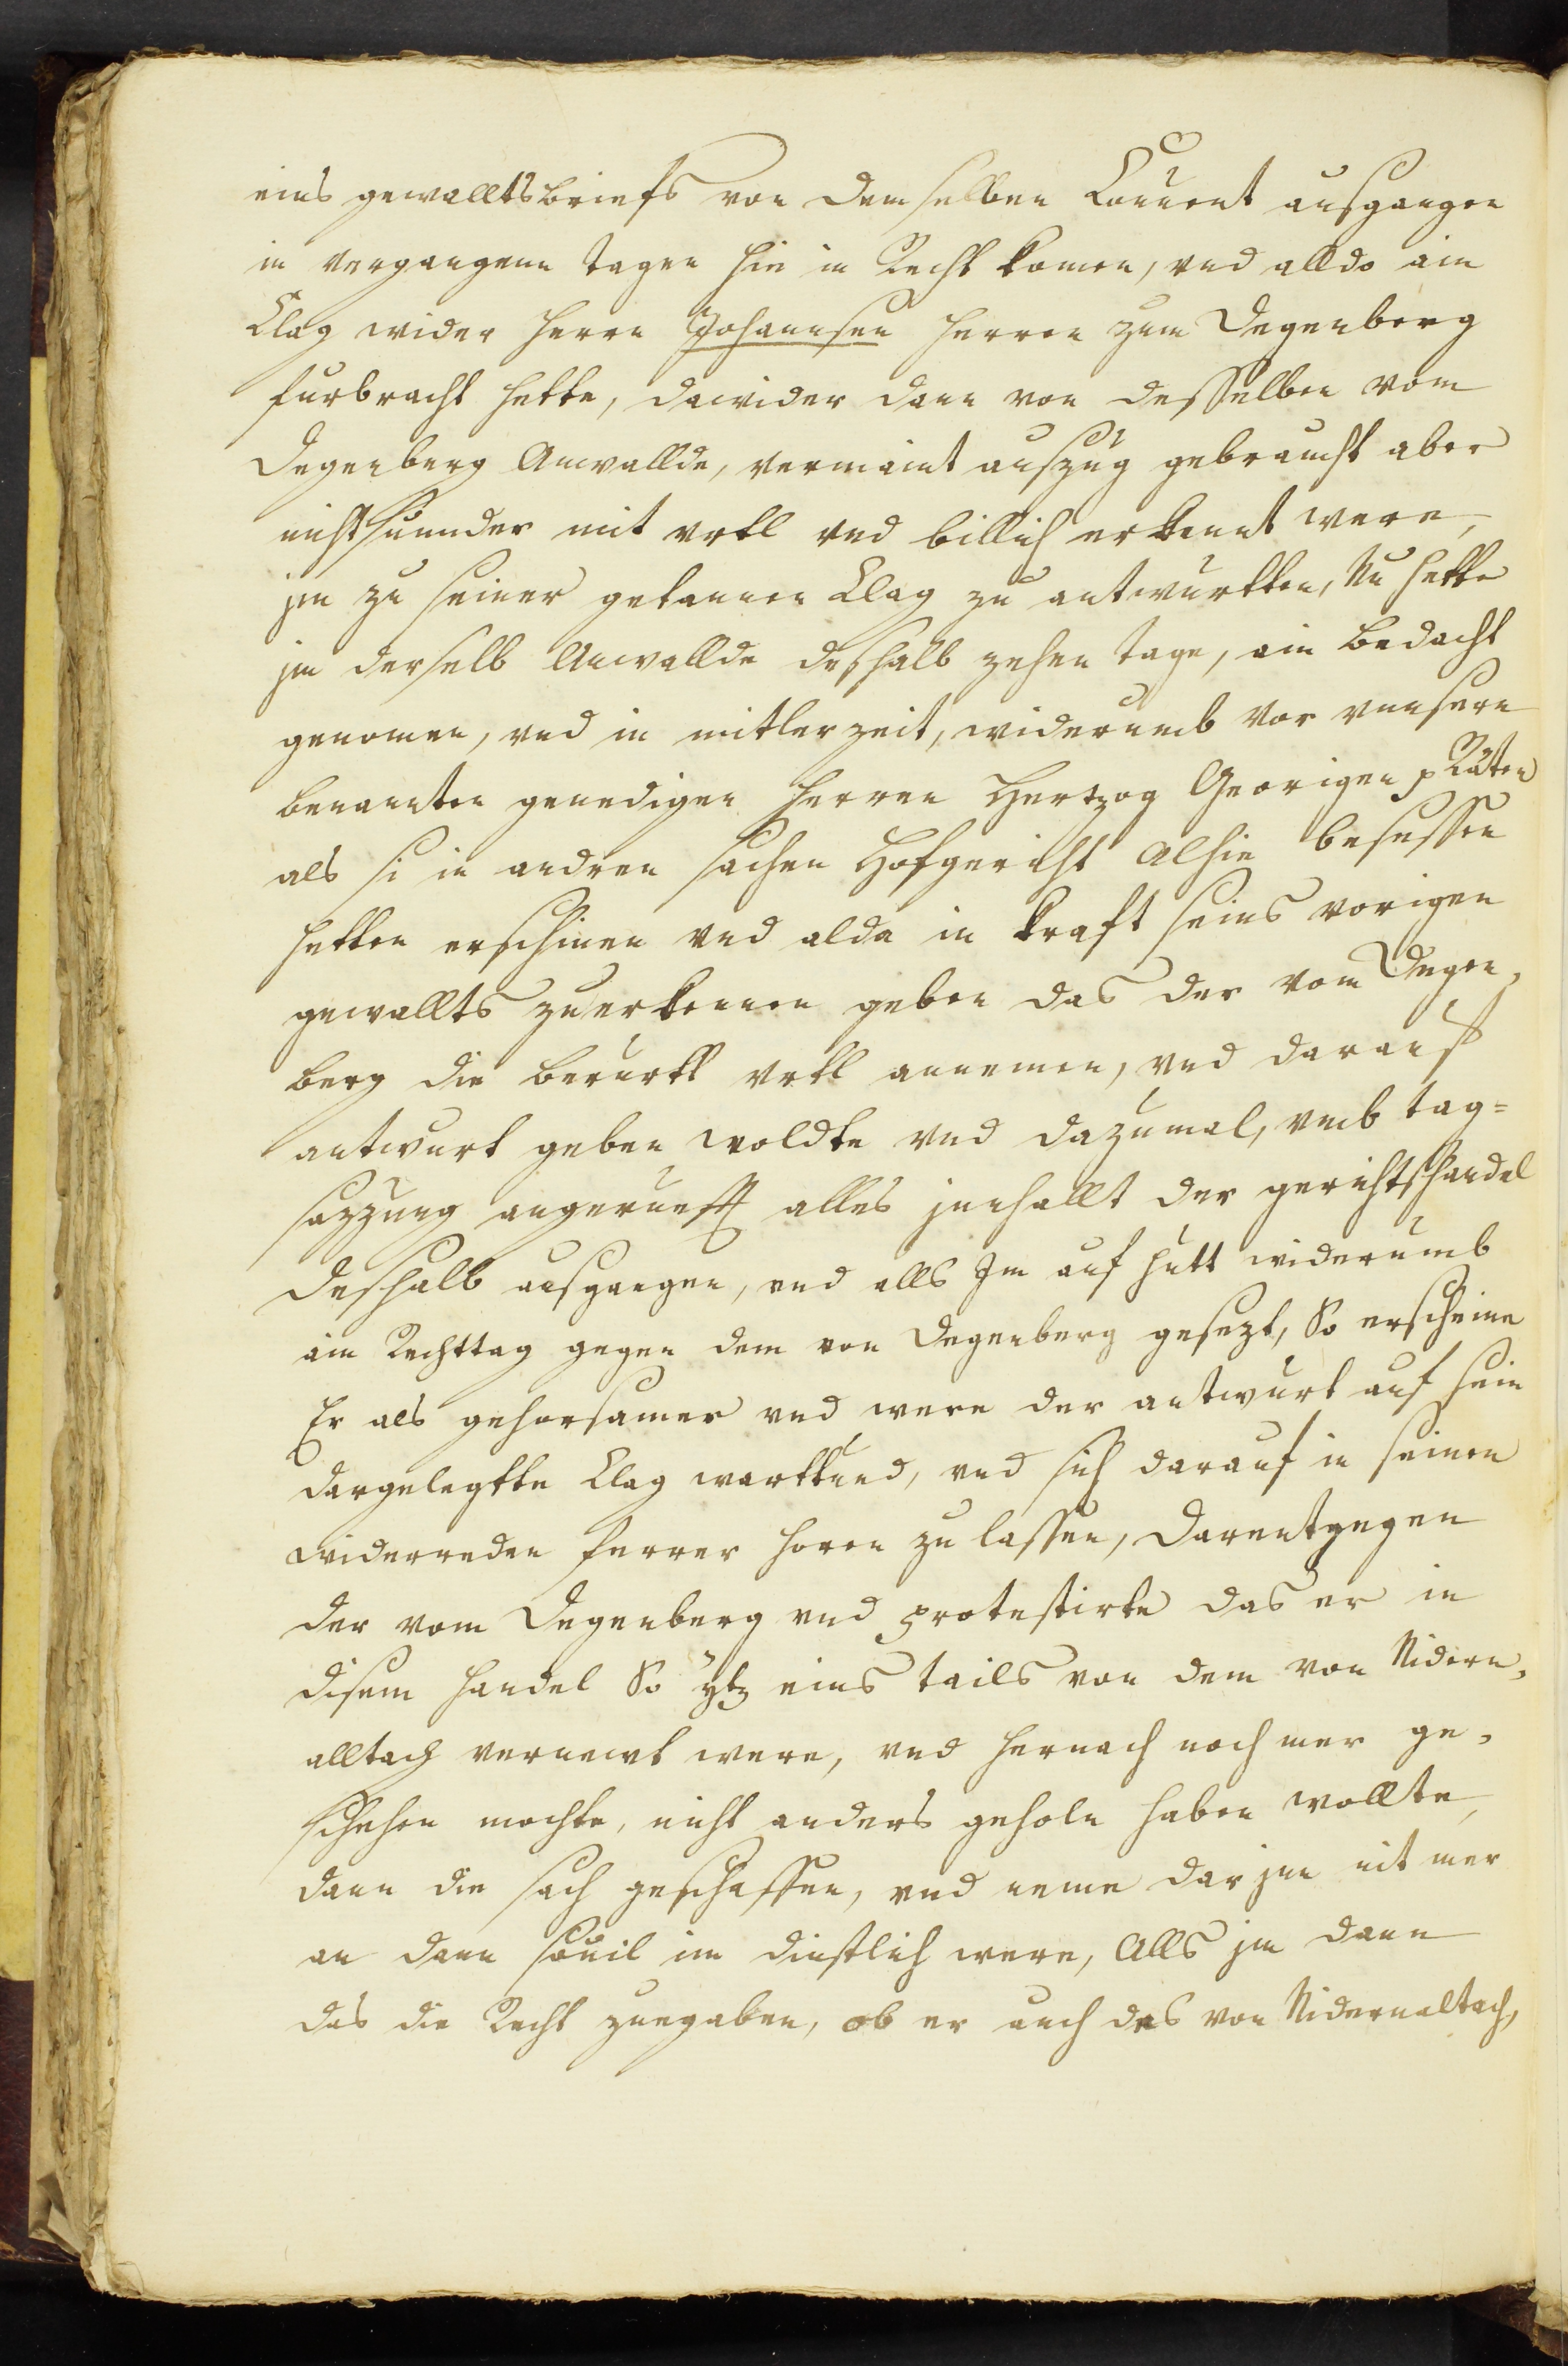 eins gewalltsbriefs von demselben Conuent ausgangen
in vergangenn tagen hie in Recht komen, vnd alldo ain
Clag wider herrn Johannsen herren zum Degenberg
furbracht hette, dawider dann von desselben vom
Degenberg Anwallde, vermaint auszug gebraucht aber
nichtsunnder mit vrtl vnd billich erkennt were,
jm zu seiner getannen Clag zu antwurtten, Nu hette
jm derselb Anwallde deshalb zehen tage, ain bedacht
genomen, vnd in mitlerzeit, widerumb vor vnnsern
benannten genedigen herren Hertzog Georigen p Räten
als si in andren sachen Hofgericht Alhie besessen
hetten erschinen vnd alda in kraft seins vorigen
gewallts zuerkennen geben das der vom Degen,
berg die berurtt vrtl annemen, vnd darauf
antwurt geben woldte vnd dazumal, vmb tag=
sazzung angerueft alles jnnhallt der gerichtshandel
deshalb ausgangen, vnd alls Im auf hütt widerumb
ain Rechttag gegen dem von Degenberg gesezt, So erscheine
Er als gehorsamer vnd were der antwurt auf sein
dargelegtte Clag warttund, vnd sich darauf in seinen
widerreden ferrer horen zu lassen, Darentgegen
der vom Degenberg vnd protestirte das er in
disem handel So ytz eins tails von dem von Nidern,
alltach vernewt were, vnd hernach noch mer ge,
schehen mochte, nicht anders geholn haben wollte,
dann die sach geschaffen, vnd neme darjnn nit mer
an dann souil im dinstlich were, Alls jm dann
das die Recht zuegaben, ob er auch des von Nidernaltach,